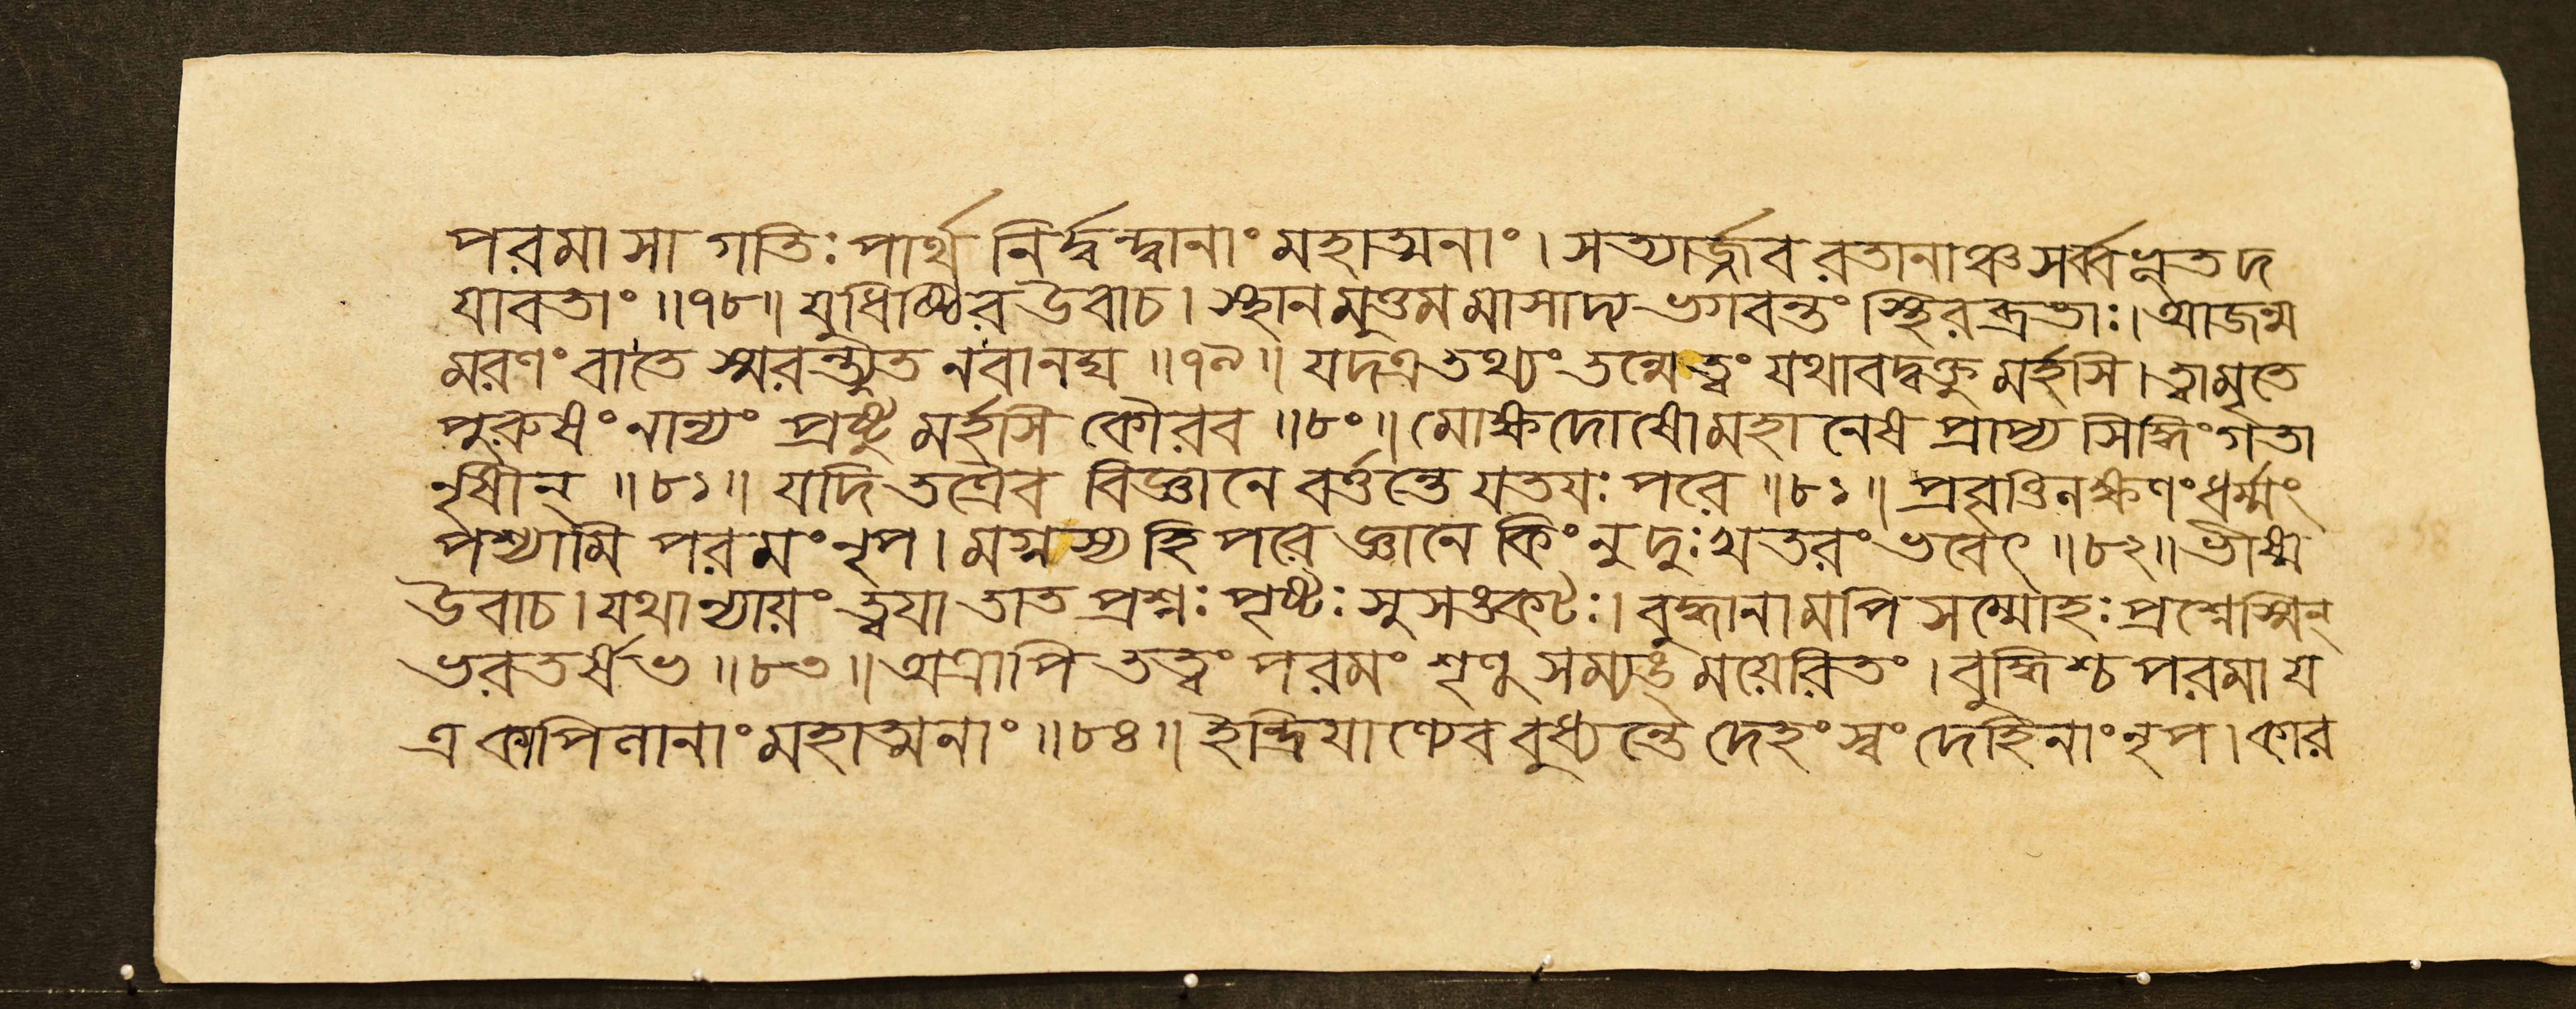 পরমা সা গতিঃ পার্থ নির্দ্বন্দ্বানাং মহাত্মনাং । সত্যার্জ্জব রতানাঞ্চ সর্ব্বভূত দ
যাবতাং ॥৭৮॥ যুধিষ্ঠির উবাচ । স্থানমুত্তমমাসাদ্য ভগবন্তং স্থিরব্রতাঃ । আজন্ম
মরণং বা তে স্মরন্ত্যুত ন বানঘ ॥৭৯॥ যদত্র তথ্যং তন্মে ত্বং যথাবদ্বক্তু মর্হসি । ত্বামৃতে
পুরুষং নান্যং প্রষ্টু মর্হাসি কৌরব ॥৮০॥ মোক্ষদোষো মহানেষ প্রাপ্য সিদ্ধিং গতা
নৃষীন্ ॥৮১॥ যদি তত্রৈব বিজ্ঞানে বর্ত্তন্তে যতযঃ পরে ॥৮১॥ প্রবৃত্তি লক্ষণং ধর্ম্মং
পশ্যামি পরমং নৃপ । মগ্নস্য হি পরে জ্ঞানে কিং নু দুঃখতরং ভবেৎ ॥৮২॥ ভীষ্ম
উবাচ । যথা ন্যায়ং ত্বযা তাত প্রশ্নঃ পৃষ্টঃ সুসঙ্কটঃ । বুদ্ধানামপি সম্মোহঃ প্রশ্নেস্মিন্
ভরতর্ষভ ॥৮৩॥ অত্রাপি তত্বং পরমং শৃণু সম্যঙ্ ময়েরিতং । বুদ্ধিশ্চ পরমা য
ত্র কাপিলানাং মহাত্মনাং ॥৮৪॥ ইন্দ্রিযাণ্যেব বুধ্যন্তে দেহং স্বং দেহিনাং নৃপ । কার